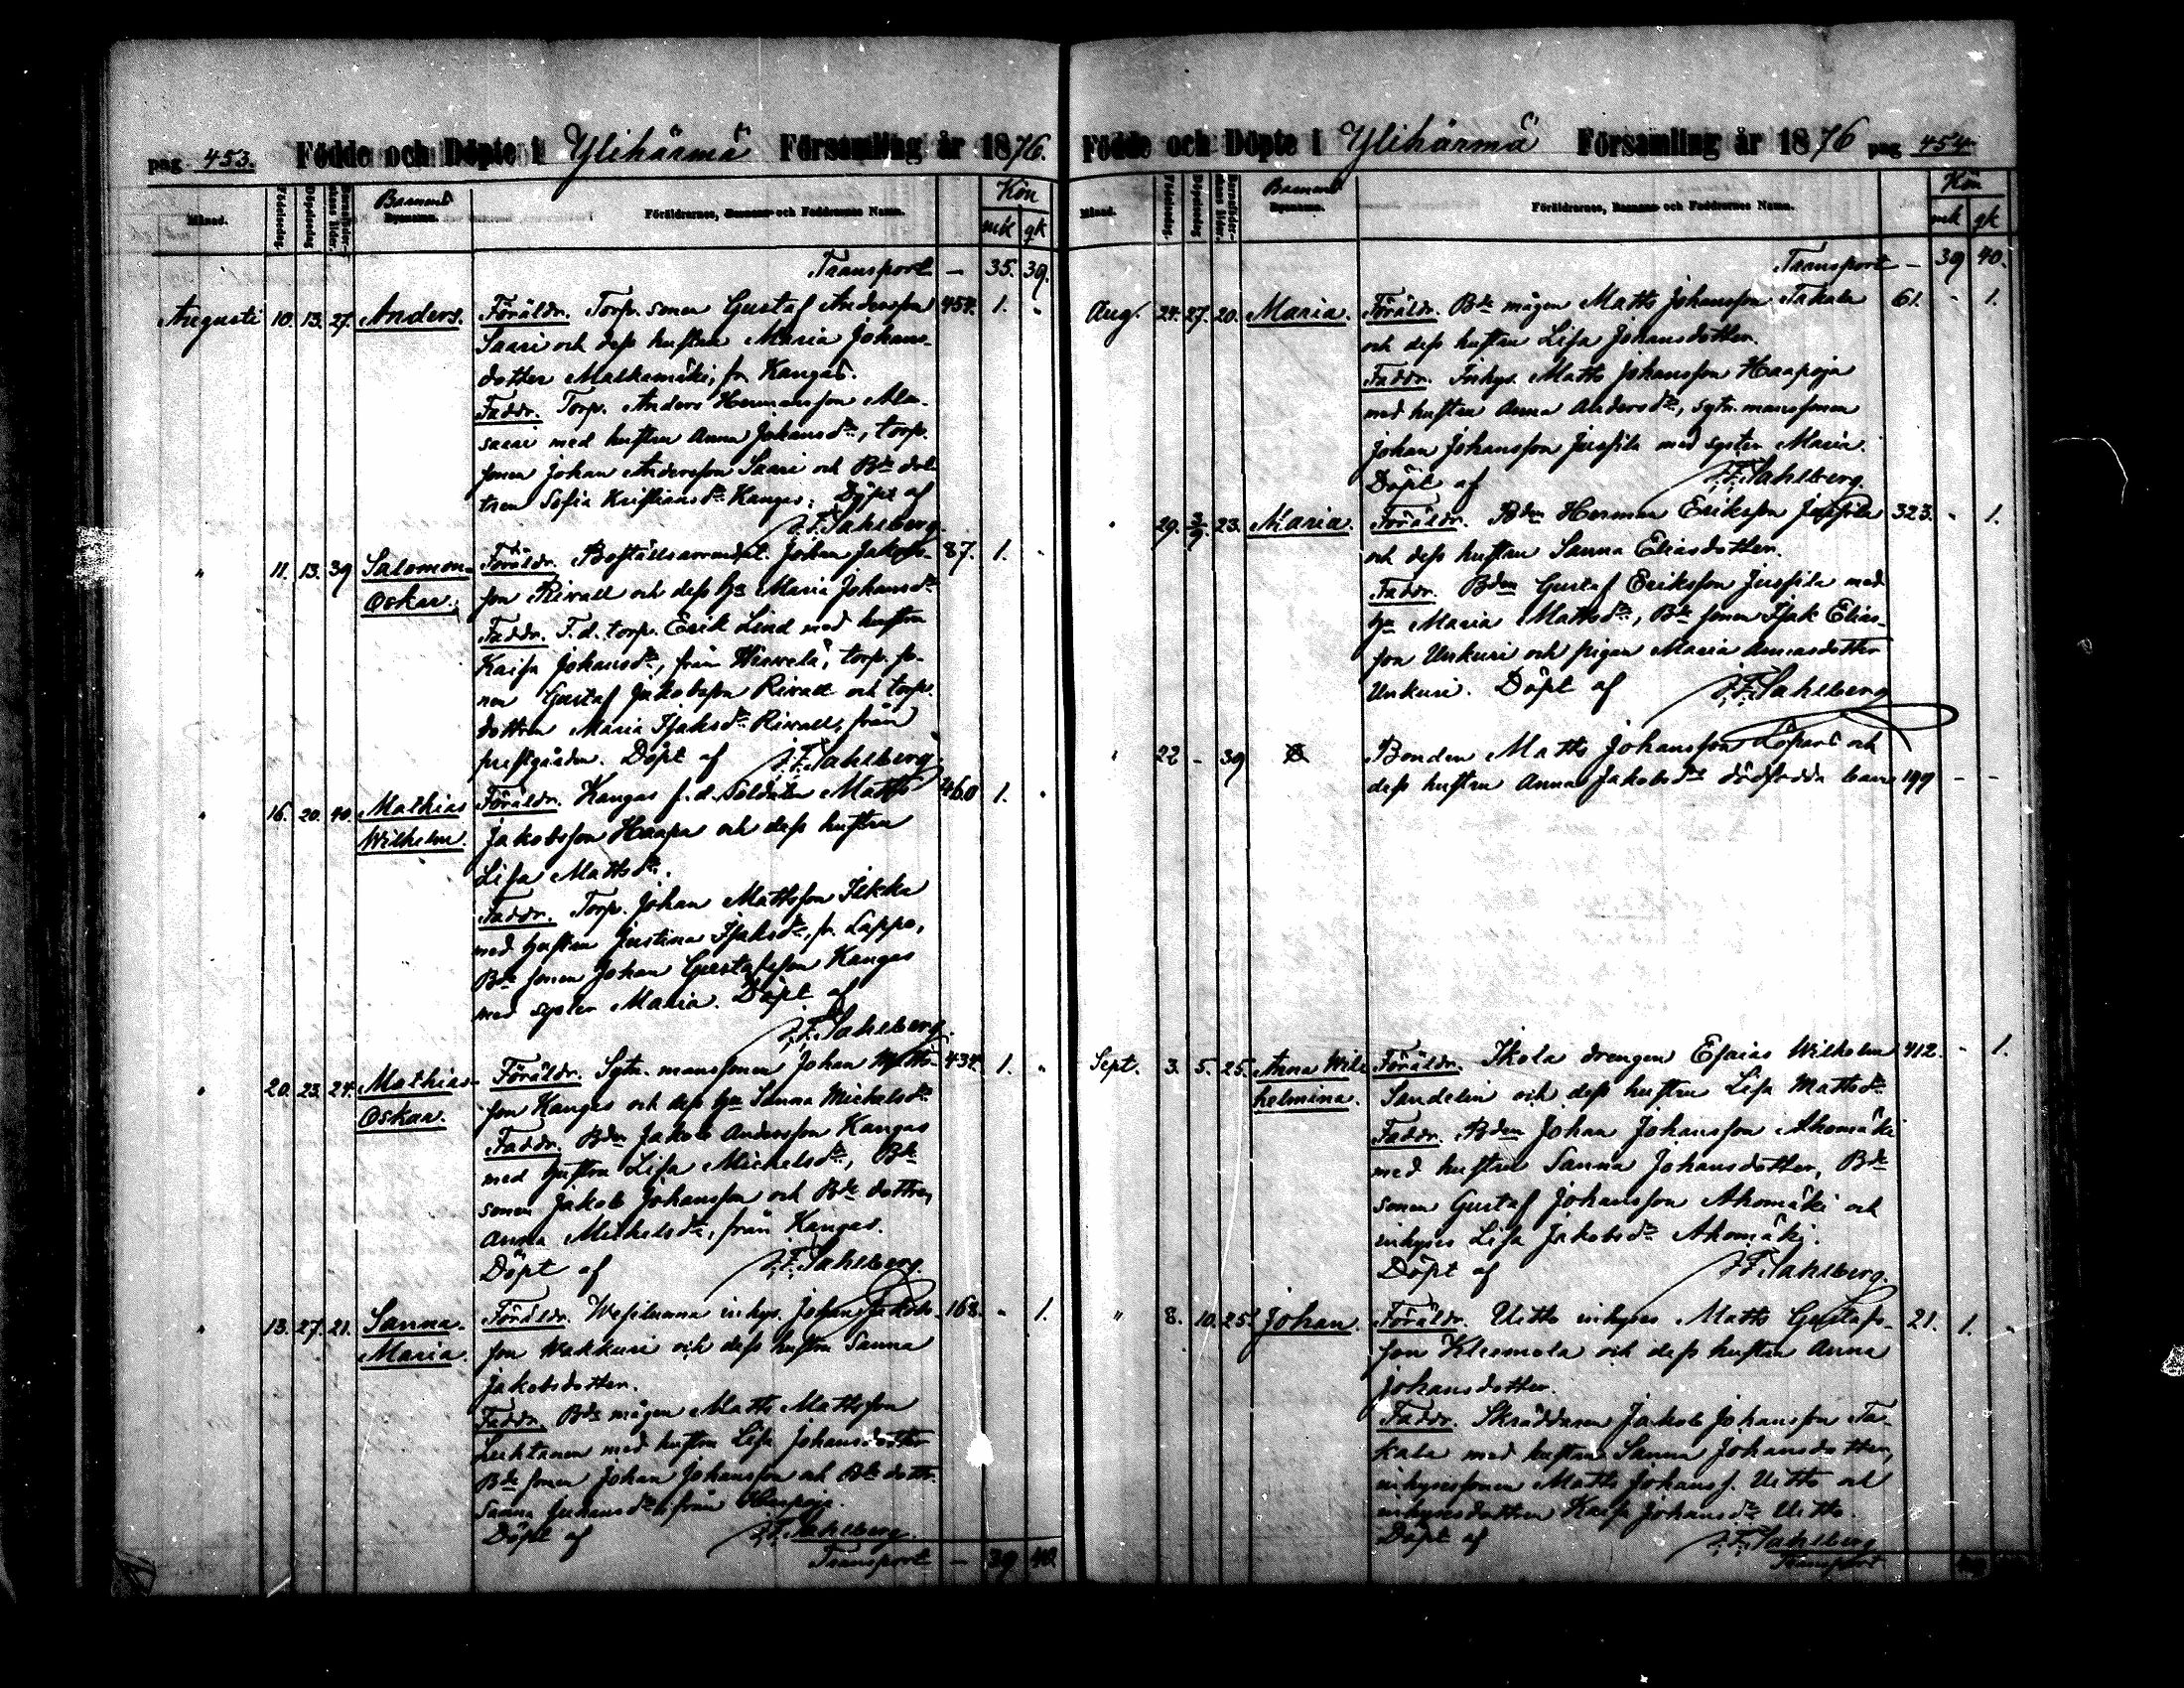 pag 453. Födde och Döpte i Ylihärmä Församling år 1876.
Månad. Födelsedag. Döpelsedag. Barnaföderskans ålder. Barnens Föräldrarnes, Barnens och Faddrarnes Namn. Kön
mk qk
Transport — 35. 39.
Augusti 10. 13. 27. Anders. Föräldr. Torp. sonen Gustaf Andersson 454. 1. "
Saari och dess hustru Maria Johans-
dotter Malkamäki, fr. Kangas.
Faddr. Torp. Anders Hermansson Ala-
saari med hustru Anna Johansdr, torp.
sonen Johan Andersson Saari och Bde dot-
tren Sofia Kristiansdr Kangas. Döpt af
J. F. Sahlberg.
" 11. 13. 39 Salomon- Föräldr. Boställsarrendat. Johan Jakobs- 87. 1. "
Oskar. son Rivall och dess ha Maria Johansdr
Faddr. F. d. torp. Erik Lind med hustru
Kaisa Johansdr, från torp. so-
nen Gustaf Jakobsson Rivall och torp.
dottren Maria Isaksdr Rivall, från
prestgården. Döpt af J. F. Sahlberg
" 16. 20. 40. Mathias Föräldr. Kangas f. d. Soldaten Matts 460 1. "
Wilhelm. Jakobsson Haapa och dess hustru
Lisa Mattsdr.
Faddr. Torp. Johan Mattsson Ilkka
med hustru Justina Isaksdr, fr. Lappo,
Bde sonen Johan Gustafsson Kangas
med syster Maria. Döpt af
J. F. Sahlberg.
" 20. 23. 24. Mathias- Föräldr. Sytn. mansonen Johan Matts- 434. 1. "
Oskar. son Kangas och dess ha Sanna Michelsdr
Faddr. Bdn Jakob Andersson Kangas
med hustru Lisa Michelsdr, Bde
sonen Jakob Johansson och Bde dottren
Anna Michelsdr, från Kangas.
Döpt af J. F. Sahlberg.
" 13. 27. 21. Sanna- Föräldr. inhys. Johan Jakobs- 168. " 1.
Maria. son Wakkuri och dess hustru Sanna
Jakobsdotter.
Faddr. Bde mågen Matts Mattsson
Luhtanen med hustru Lisa Johansdotter
Bde sonen Johan Johansson och Bde dottr.
Sanna Johansdr från Haapoja.
Döpt af J. F. Sahlberg.
Transport — 39 40
Födde och Döpte i Ylihärmä Församling år 1876 pag 454
Månad. Födelsedag. Döpelsedag. Barnaföderskans ålder. Barnens Föräldrarnes, Barnens och Faddrarnes Namn. Kön
mk qk
Transport — 39 40.
Aug. 24. 27. 20. Maria. Föräldr. Bde mågen Matts Johansson Takala 61. " 1.
och dess hustru Lisa Johansdotter.
Faddr. Inhys. Matts Johansson Haapoja
med hustru Anna Andersdr, sytn. mansonen
Johan Johansson Jussila med syster Maria.
Döpt af J. F. Sahlberg.
" 29. 3/9. 23. Maria. Föräldr. Bdn Herman Eriksson Jussila 323. " 1.
och dess hustru Sanna Eliasdotter.
Faddr. Bden Gustaf Eriksson Jussila med
ha Maria Mattsdr, Bde sonen Isak Elias-
son Unkuri och pigan Maria
Unkuri. Döpt af J. F. Sahlberg
" 22 - 39 Bonden Matts Johansson och
dess hustru Anna Jakobsdr dödfödda barn 199 - -
Sept. 3. 5. 25. Anna Wil- Föräldr. Ikola drengen Esaias Wilhelm 412. " 1.
helmina. Sandelin och dess hustru Lisa Mattsdr
Faddr. Bden Johan Johansson Ahomäki
med hustru Sanna Johansdotter, Bde
sonen Gustaf Johansson Ahomäki och
inhyses Lisa Jakobsdr Ahomäki.
Döpt af J. F. Sahlberg.
" 8. 10. 25. Johan. Föräldr. Uitto inhyses Matts Gustafs- 21. 1. "
son Kleemola och dess hustru Anna
Johansdotter.
Faddr. Skräddaren Jakob Johansson Ta-
kala med hustru Sanna Johansdotter,
inhysessonen Matts Johanss. Uitto och
inhysesdottren Kaisa Johansdr Uitto.
Döpt af J. F. Sahlberg
Transport